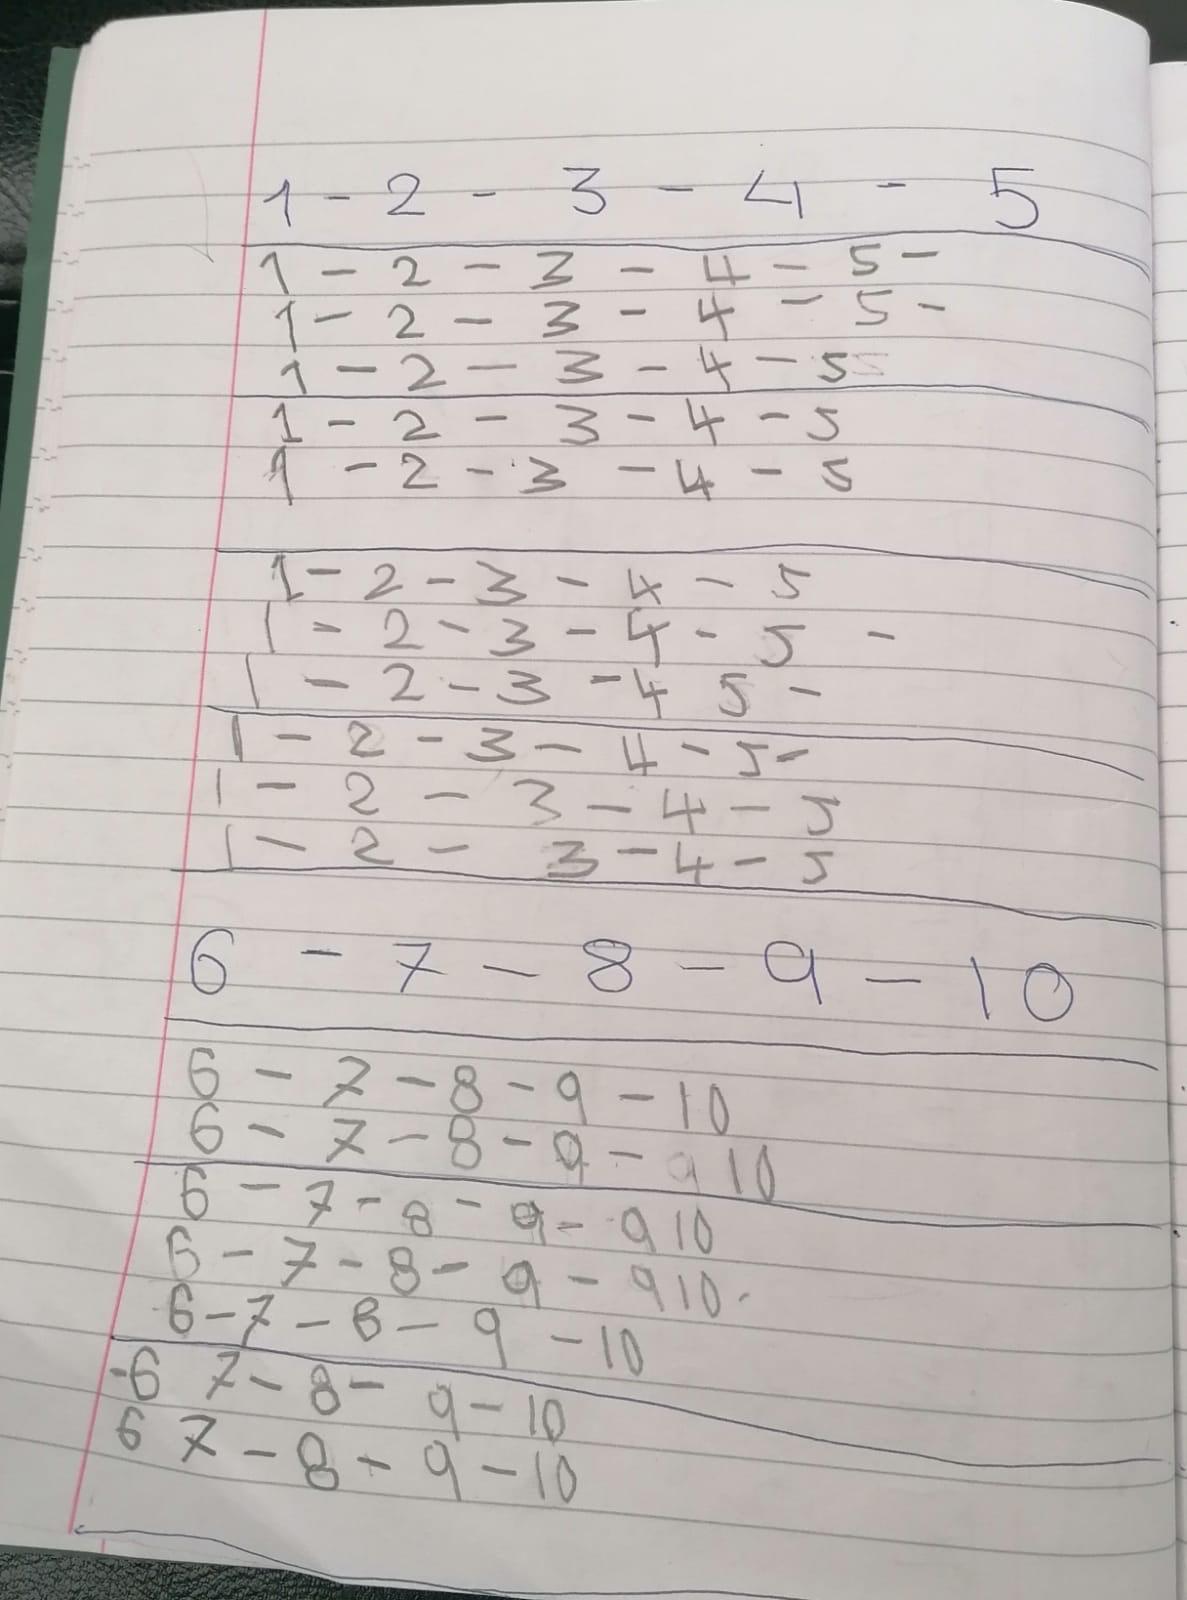 1 - 2 - 3 - 4 - 5
1 - 2 - 3 - 4 - 5 -
1 - 2 - 3 - 4 - 5 -
1 - 2 - 3 - 4 - 5 5
1 - 2 - 3 - 4 - 5
1 - 2 - 3 - 4 - 5
1 - 2 - 3 - 4 - 5
1 - 2 - 3 - 4 - 5 -
1 - 2 - 3 - 4 5 -
1 - 2 - 3 - 4 - 5 -
1 - 2 - 3 - 4 - 5
1 - 2 - 3 - 4 - 5
6 - 7 - 8 - 9 - 10
6 - 7 - 8 - 9 - 10
6 - 7 - 8 - 9 - 9 10
6 - 7 - 8 - 9 - 9 10
6 - 7 - 8 - 9 - 9 10.
6 - 7 - 8 - 9 - 10
-6 7 - 8 - 9 - 10
6 7 - 8 - 9 - 10